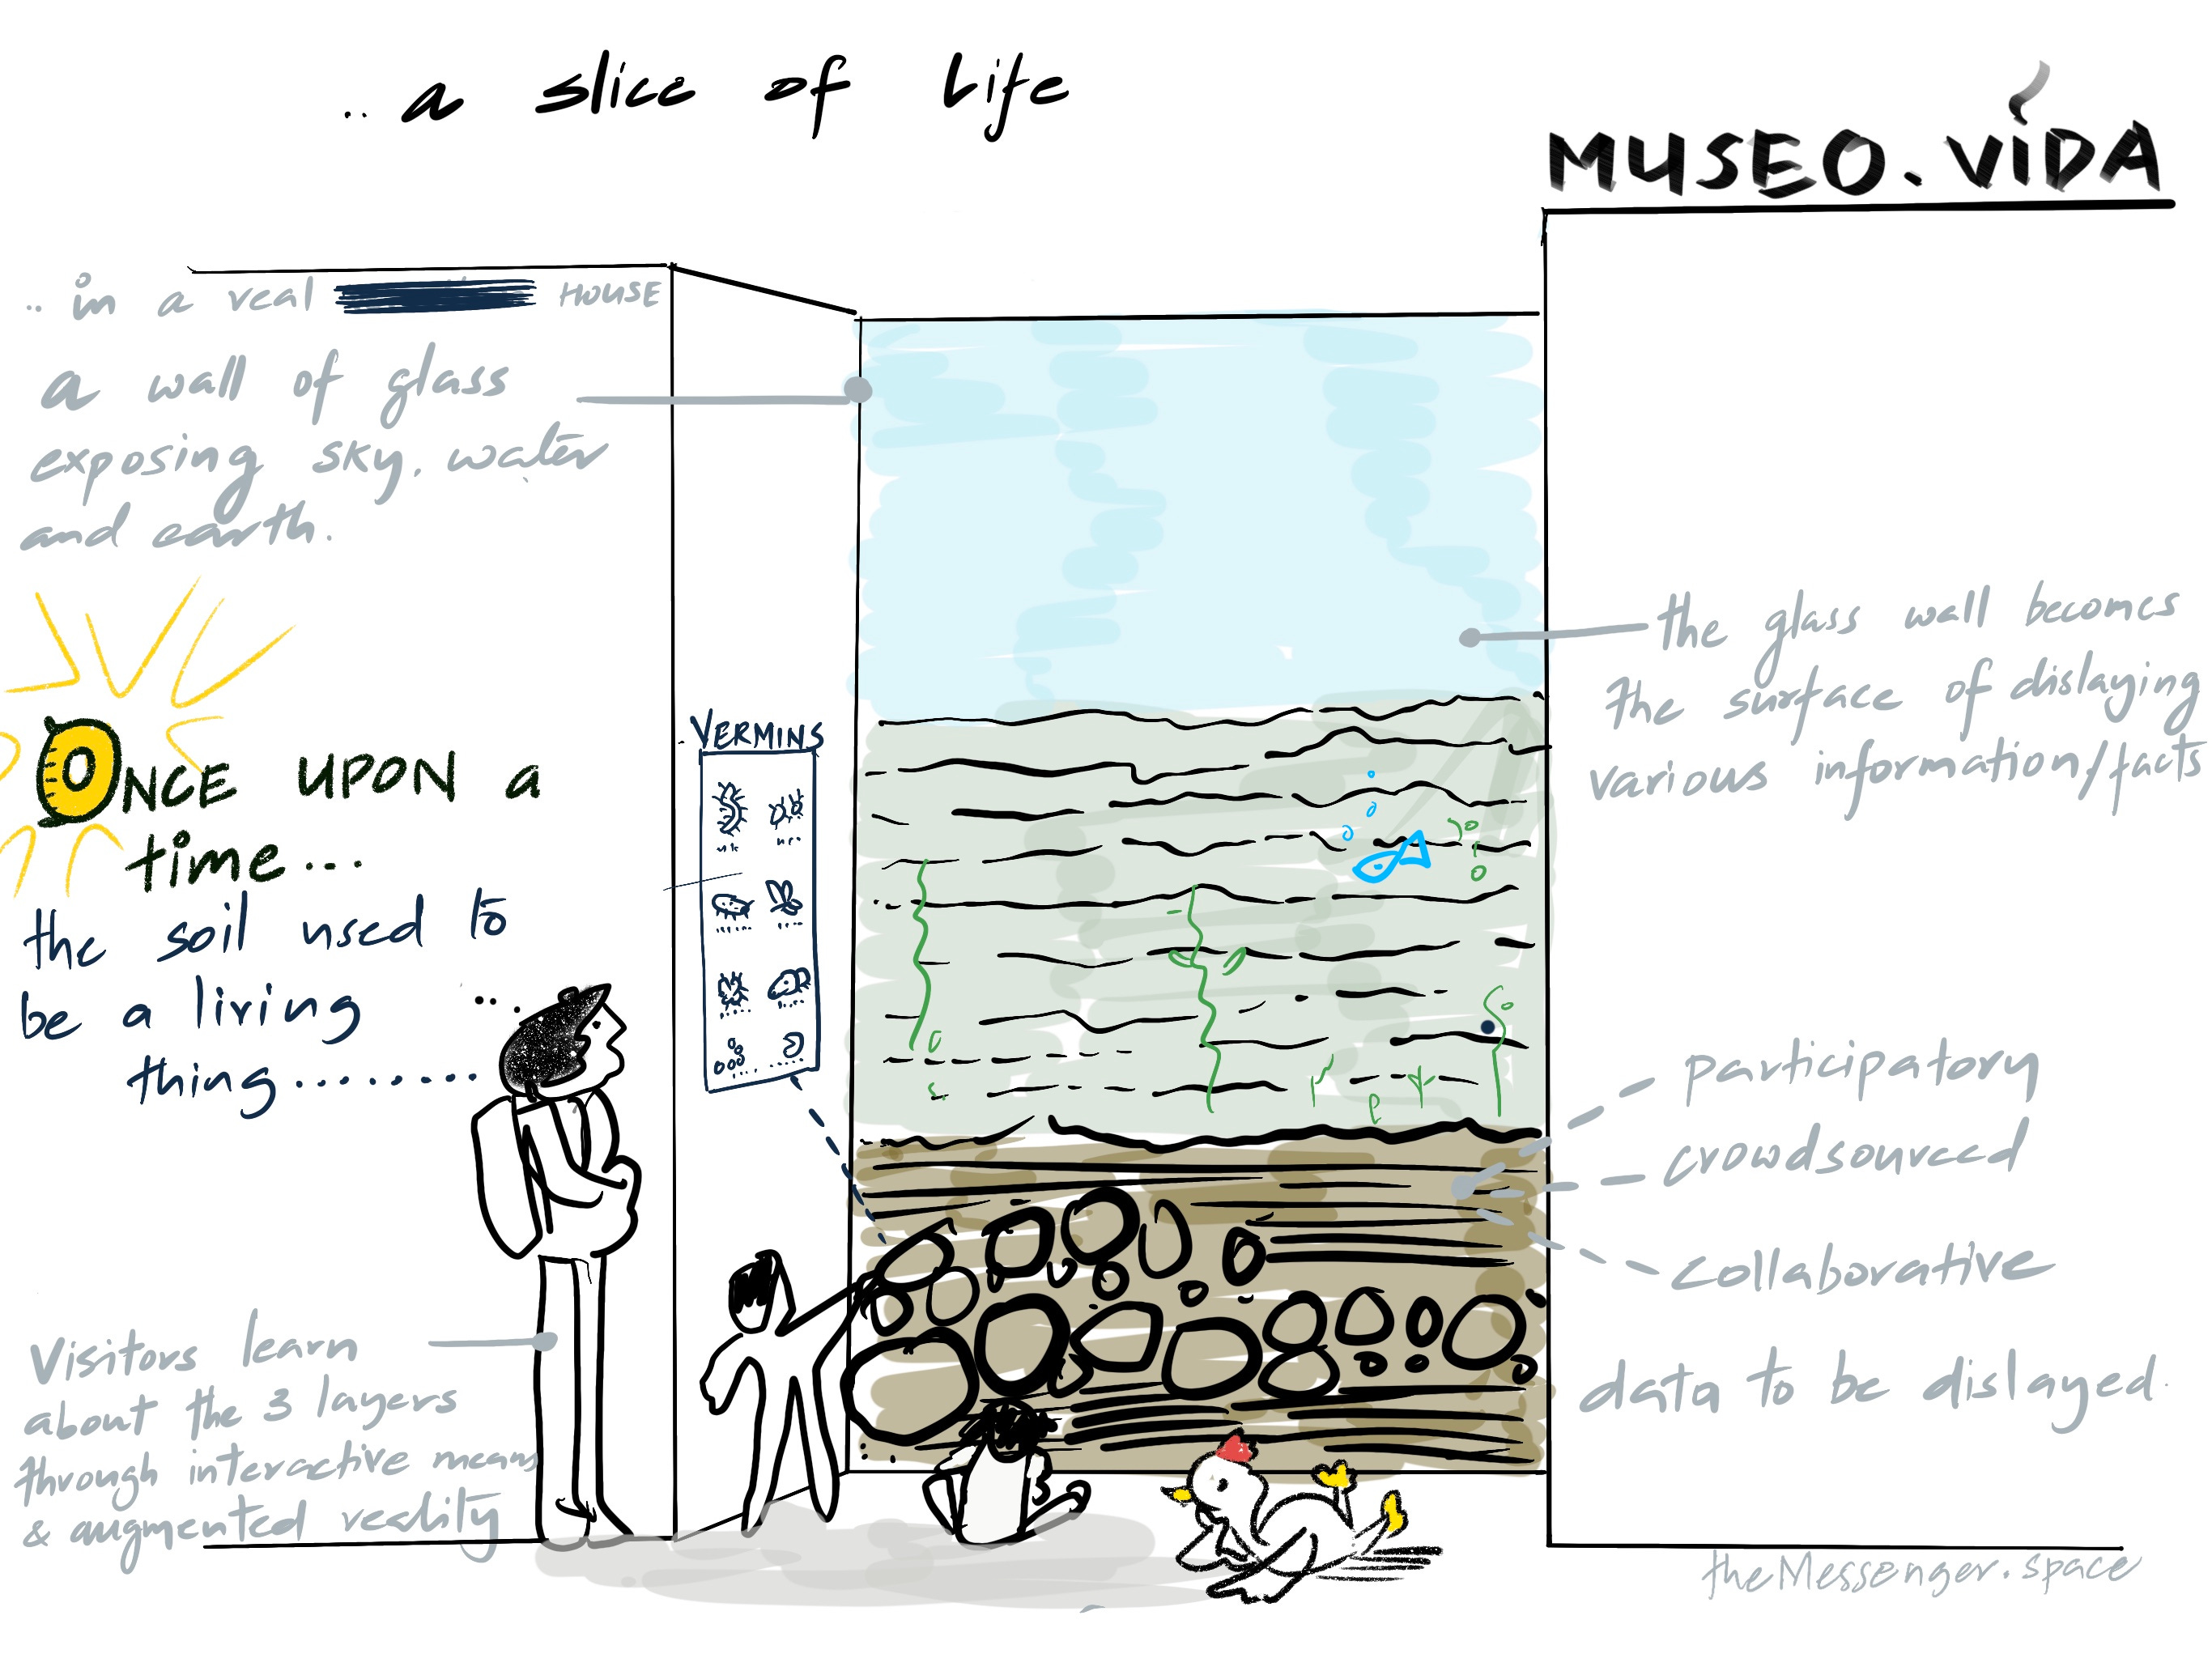 .. a slice of life
MUSEO.VIDA
.. in a real HOUSE
a wall of glass
exposing sky, water
and earth.
ONCE UPON a
time...
the soil used to
be a living
thing.........
Visitors learn
about the 3 layers
through interactive means
& augmented reality
VERMINS
the glass wall becomes
the surface of dislaying
various information/facts
participatory
crowdsourced
collaborative
data to be dislayed.
theMessenger.space